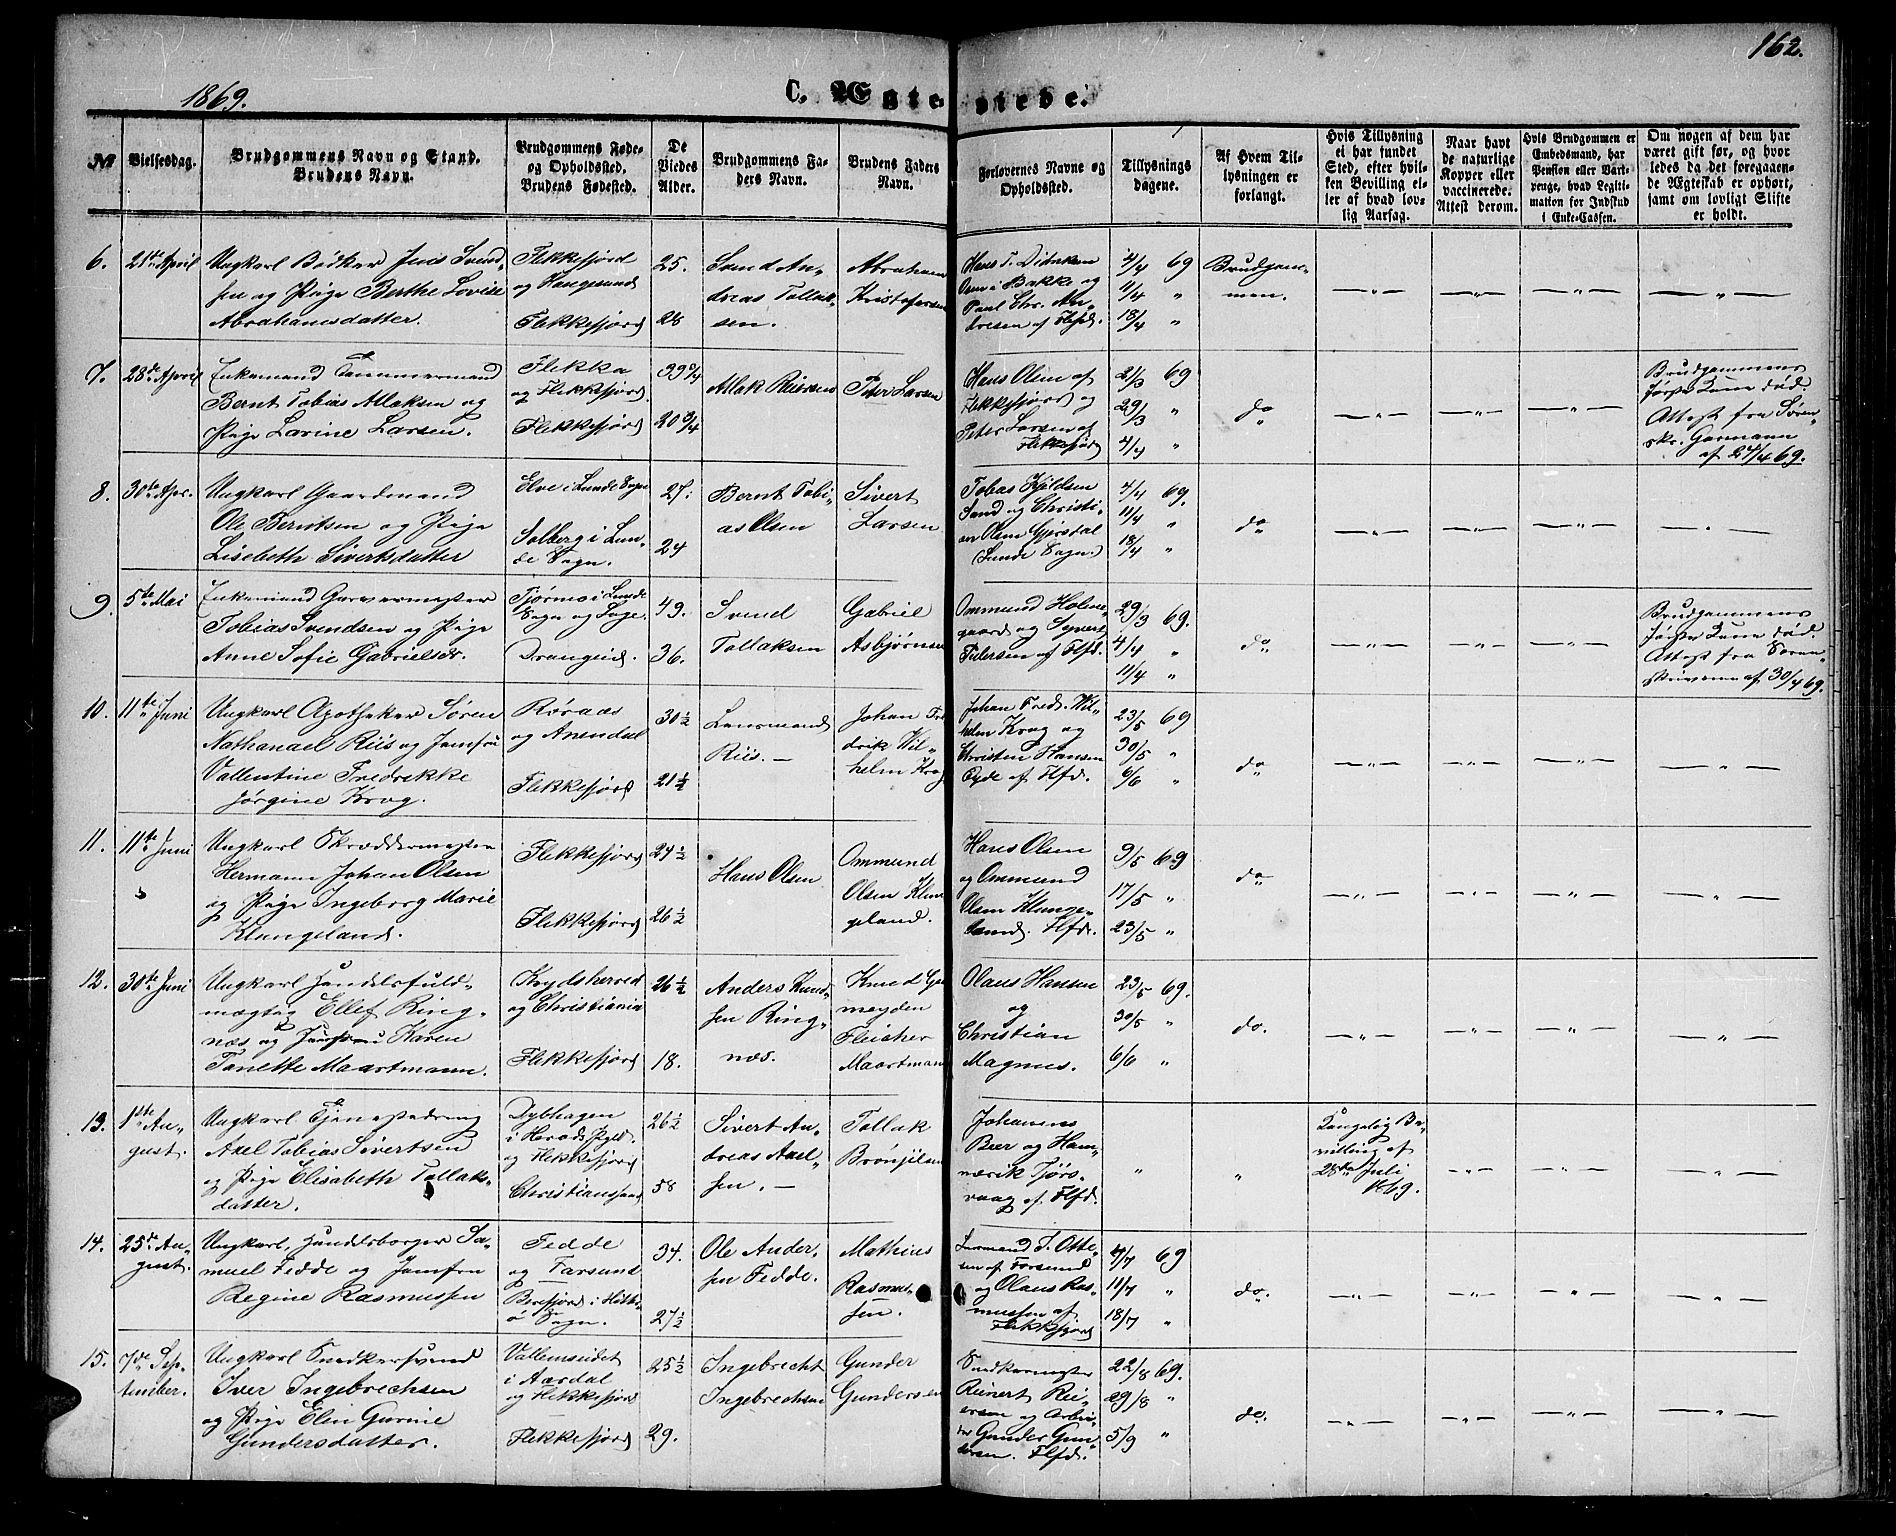 162.
1869.
C. Ægteviede.
№
Vielsesdag.
Brudgommens Navn og Stand.
Brudens Navn.
Brudgommens Føde-
og Opholdssted.
Brudens Fødested.
De
Viedes
Alder.
Brudgommens Fa-
ders Navn.
Brudens Faders
Navn.
Forlovernes Navne og
Opholdssted.
Tillysnings
dagene.
Af Hvem Til-
lysningen er
forlangt.
Hvis Tillysning
ei har fundet
Sted, efter hvil-
ken Bevilling el-
ler af hvad lov-
lig Aarsag.
Naar havt
de naturlige
Kopper eller
vaccinerede.
Attest derom.
Hvis Brudgommen er
Embedsmand, har
Pension eller Vart-
penge, hvad Legiti-
mation for Indskud
i Enke-Cassen.
Om nogen af dem har
været gift før, og hvor
ledes da det foregaaen-
de Ægteskab er ophørt,
samt om lovligt Skifte
er holdt.
6. 21de April
Ungkarl Bødker Jens Svend-
sen og Pige Berthe Lovise
Abrahamsdatter.
Flekkefjord
og Haugesund
Flekkefjord
25.
28
Svend An-
dreas Tollak-
sen.
Abraham
Kristofersen
Hans T. Didriksen
Osen i Bakke og
Paul Chr. An-
dresen af Flfd.
4/4 69
11/4 "
18/4 "
Brudgom-
men.
7. 28de April
Enkemand Tømmermand
Bernt Tobias Atlaksen og
Pige Larine Larsen.
Flekka
og Flekkefjord
Flekkefjord
39 3/4
20 3/4
Atlak Reiersen
Peter Larsen
Hans Olsen af
Flekkefjord og
Peter Larsen af
Flekkefjord
21/3 69
29/3 "
4/4 "
do
Brudgommens
første Kone død.
Attest fra Soren-
skr. Garmann
af 27/4 69.
8. 30te Apr.
Ungkarl Gaardmand
Ole Berntsen og Pige
Lisebeth Sivertsdatter
Elve i Lunde Sogn
Solberg i Lun-
de Sogn.
27.
24
Bernt Tobi-
as Olsen
Sivert
Larsen
Tobias Kjeldsen
Sand og Christi-
an Olsen Gjersdal
Lunde Sogn.
4/4 69.
11/4 "
18/4 "
do
9. 5te Mai
Enkemand Garvermester
Tobias Svendsen og Pige
Anne Sofie Gabrielsdr.
Tjørmo i Lunde
Sogn og Loge.
Drangeid.
49.
36.
Svend
Tollaksen
Gabriel
Asbjørnsen
Ommund Holme-
gaard og Syvert
Pedersen af Flfd.
29/3 69.
4/4 "
11/4 "
do
Brudgommens
første Kone død.
Attest fra Soren-
skriveren af 30/4 69.
10. 11te Juni
Ungkarl Apotheker Søren
Nathanael Riis og Jomfru
Vallentine Fredrekke
Jørgine Krog.
Røraas
og Arendal
Flekkefjord
30 1/2
21 1/2
Lensmand
Riis.
Johan Fre
drik Wil-
helm Krog
Johan Fredr. Wil-
helm Krog og
Christen Hansen
Eyde af Flfd.
23/5 69
30/5 "
6/6 "
do
11. 11te Juni
Ungkarl Skræddermester
Hermann Johan Olsen
og Pige Ingeborg Marie
Klungeland.
Flekkefjord
Flekkefjord
24 1/2
26 1/2
Hans Olsen
Ommund
Olsen Klun
geland.
Hans Olsen
og Ommund
Olsen Klunge-
land. Flfd.
9/5 69
17/5 "
23/5 "
do
12. 30te Juni
Ungkarl Handelsfuld-
mægtig Ellef Ring-
næs og Jomfru Karen
Tanette Maartmann.
Krydsherred
og Christiania
Flekkefjord
26 1/2
18.
Anders Knud-
sen Ring-
næs.
Knud Ge
meyden
Fleischer
Maartmann
Olaus Hansen
og
Christian
Magnus.
23/5 69.
30/5 "
6/6 "
do.
13. 1ste Au-
gust.
Ungkarl Tjenestedreng
Axel Tobias Sivertsen
og Pige Elisabeth Tollaks-
datter.
Dybhagen
i Herads Pgld.
og Flekkefjord
Christianssand
26 1/2
58
Sivert An-
dreas Axel-
sen.
Tollak
Brønjelsen
Johannes
Beer og Hen-
nerik Tjørs-
vaag af Flfd.
Kongelig Be-
villing af
28de Juli
1869.
14. 25de Au-
gust.
Ungkarl, Handelsborger Sa-
muel Fedde og Jomfru
Regine Rasmussen
Fedde
og Farsund
Berefjord i Hitter-
ø Sogn.
34.
27 1/2
Ole Ander-
sen Fedde.
Mathias
Rasmus-
sen.
Lensmand T. Otte-
sen af Farsund
og Olaus Ras-
mussen af
Flekkefjord
4/7 69
11/7 "
18/7 "
do.
15. 7de Sep-
tember.
Ungkarl Snedkersvend
Iver Ingebrechsen
og Pige Elin Gurine
Gundersdatter.
Vallemseidet
i Aardal
og Flekkefjord
Flekkefjord
25 1/2
29.
Ingebrecht
Ingebrechsen
Gunder
Gundersen
Snedkermester
Reinert Rei-
ersen og Arbei-
der Gunder Gun-
dersen. Flfd.
22/8 69.
29/8 "
5/9 "
do.